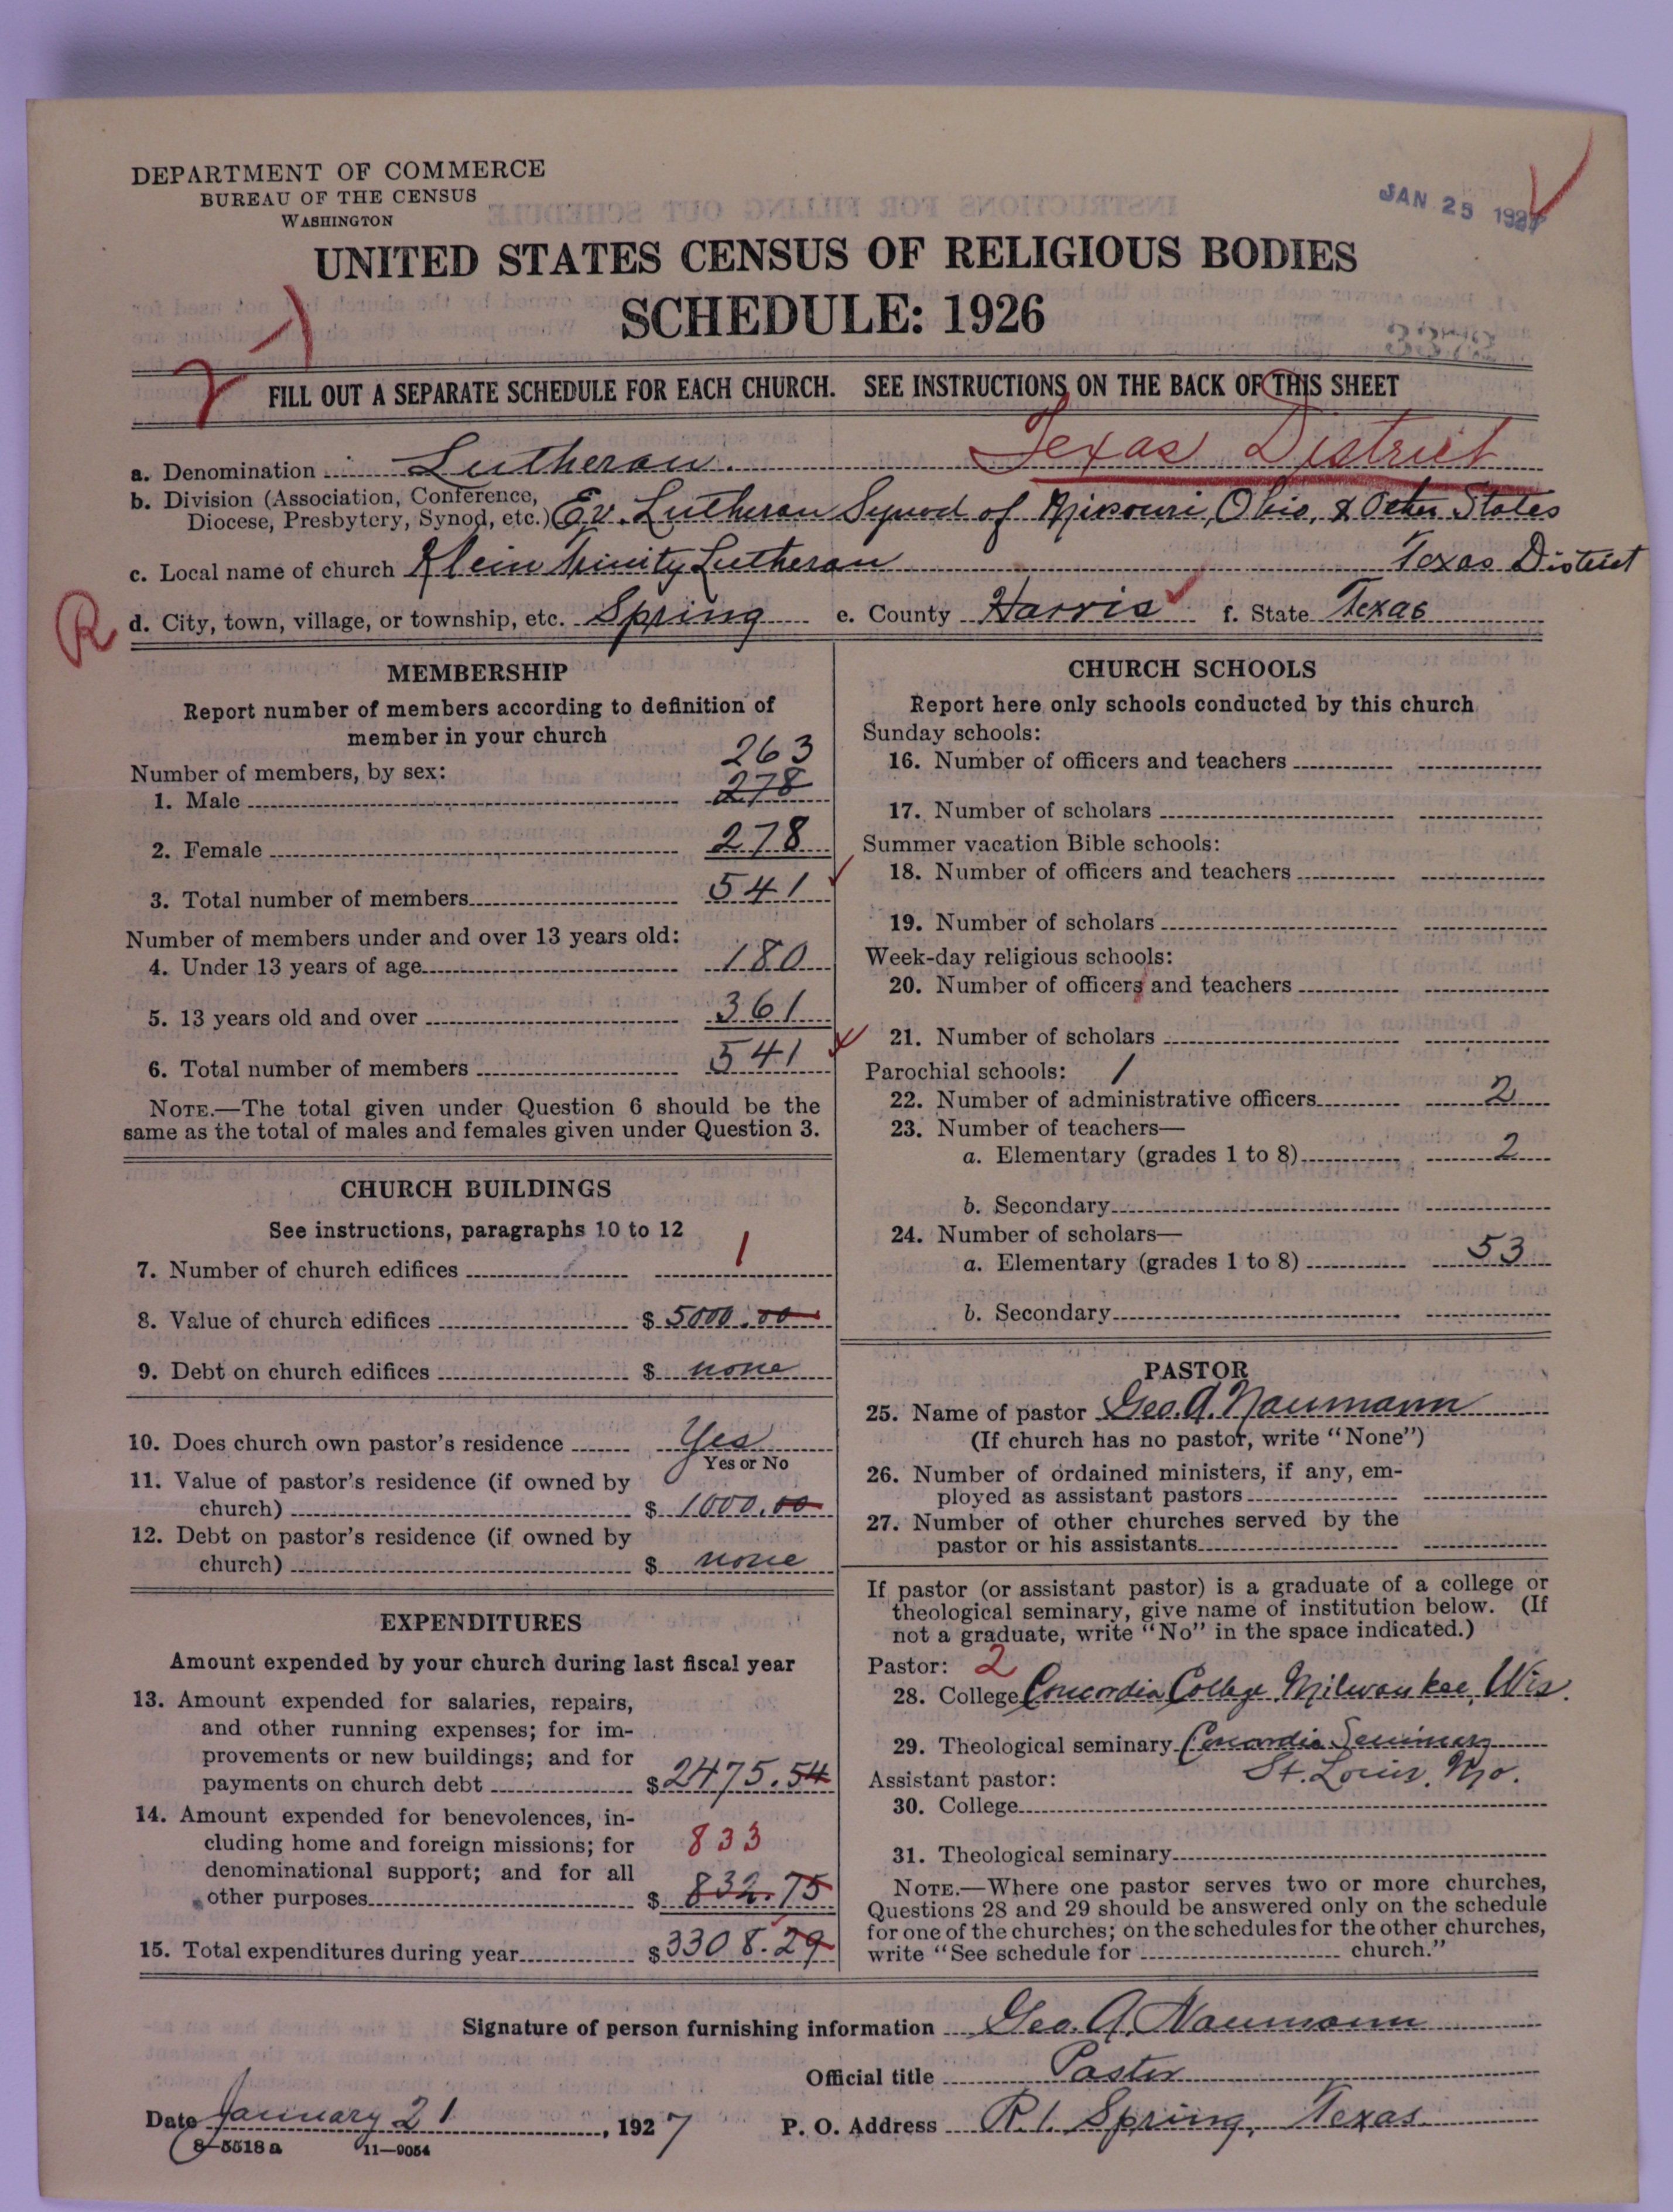 DEPARTMENT OF COMMERCE
BUREAU OF THE CENSUS
WASHINGTON
JAN 25 1927
UNITED STATES CENSUS OF RELIGIOUS BODIES
SCHEDULE: 1926
FILL OUT A SEPARATE SCHEDULE FOR EACH CHURCH. SEE INSTRUCTIONS ON THE BACK OF THIS SHEET
Texas District
a. Denomination Lutheran.
b. Division (Association, Conference,
Diocese, Presbytery, Synod, etc.) Ev. Lutheran Synod of Missouri, Ohio, & Other States
c. Local name of church Klein Trinity Lutheran Texas District
R d. City, town, village, or township, etc. Spring e. County Harris f. State Texas
MEMBERSHIP
Report number of members according to definition of
member in your church
263
Number of members, by sex:
1. Male 278
2. Female 278
3. Total number of members 541
Number of members under and over 13 years old:
4. Under 13 years of age 180
5. 13 years old and over 361
6. Total number of members 541
NOTE.—The total given under Question 6 should be the
same as the total of males and females given under Question 3.
CHURCH BUILDINGS
See instructions, paragraphs 10 to 12
7. Number of church edifices 1
8. Value of church edifices $ 5000.00
9. Debt on church edifices $ none
10. Does church own pastor's residence Yes
Yes or No
11. Value of pastor's residence (if owned by
church) $ 1000.00
12. Debt on pastor's residence (if owned by
church) $ none
EXPENDITURES
Amount expended by your church during last fiscal year
13. Amount expended for salaries, repairs,
and other running expenses; for im-
provements or new buildings; and for
payments on church debt $ 2475.54
14. Amount expended for benevolences, in-
cluding home and foreign missions; for 833
denominational support; and for all
other purposes $ 832.75
15. Total expenditures during year $ 3308.29
CHURCH SCHOOLS
Report here only schools conducted by this church
Sunday schools:
16. Number of officers and teachers
17. Number of scholars
Summer vacation Bible schools:
18. Number of officers and teachers
19. Number of scholars
Week-day religious schools:
20. Number of officers and teachers
21. Number of scholars
Parochial schools: 1
22. Number of administrative officers 2
23. Number of teachers—
a. Elementary (grades 1 to 8) 2
b. Secondary
24. Number of scholars—
a. Elementary (grades 1 to 8) 53
b. Secondary
PASTOR
25. Name of pastor Geo. A. Naumann
(If church has no pastor, write "None")
26. Number of ordained ministers, if any, em-
ployed as assistant pastors
27. Number of other churches served by the
pastor or his assistants
If pastor (or assistant pastor) is a graduate of a college or
theological seminary, give name of institution below. (If
not a graduate, write "No" in the space indicated.)
Pastor: 2
28. College Concordia College Milwaukee, Wis.
29. Theological seminary Concordia Seminary
St. Louis, Mo.
Assistant pastor:
30. College
31. Theological seminary
NOTE.—Where one pastor serves two or more churches,
Questions 28 and 29 should be answered only on the schedule
for one of the churches; on the schedules for the other churches,
write "See schedule for church."
Signature of person furnishing information Geo. A. Naumann
Official title Pastor
Date January 21, 1927 P. O. Address R. 1. Spring, Texas
8-5518a 11-9054